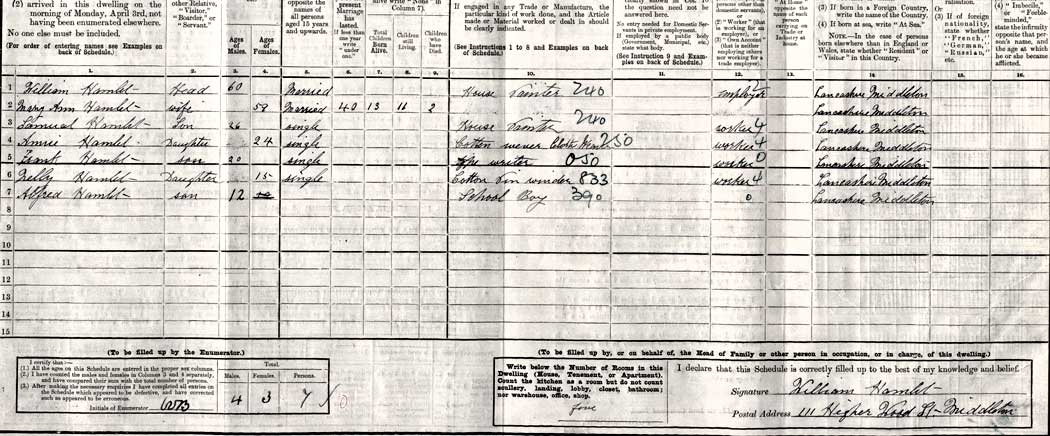 (2) arrived in this dwelling on the morning of Monday, April 3rd, not having been enumerated elsewhere.
No one else must be included.
(For order of entering names see Examples on back of Schedule.)
other Relative,
"Visitor,"
"Boarder," or
"Servant."
Ages of Males.
Ages of Females.
opposite the names of all persons aged 15 years and upwards.
present Marriage
If less than one year write "under one."
Column 7).
Total Children Born Alive.
Children still Living.
Children who have Died.
If engaged in any Trade or Manufacture, the particular kind of work done, and the Article made or Material worked or dealt in should be clearly indicated.
(See Instructions 1 to 8 and Examples on back of Schedule.)
No entry needed for Domestic Servants in private employment.
If employed by a public body (Government, Municipal, etc.) state what body.
(See Instruction 9 and Examples on back of Schedule.)
persons other than domestic servants)
or
(2) "Worker" (that is working for an employer), or
(3) "Own Account" (that is neither employing others nor working for a trade employer).
(3) If born in a Foreign Country, write the name of the Country.
(4) If born at sea, write "At Sea."
NOTE.—In the case of persons born elsewhere than in England or Wales, state whether "Resident" or "Visitor" in this Country.
(3) If of foreign nationality, state whether "French," "German," "Russian," etc.
(4) "Imbecile," or "Feeble-minded," state the infirmity opposite that person's name, and the age at which he or she became afflicted.
1. 2. 3. 4. 5. 6. 7. 8. 9. 10. 11. 12. 13. 14. 15. 16.
1 William Hamlet Head 60 Married House Painter 240 Employer Lancashire Middleton
2 Mary Ann Hamlet wife 58 Married 40 13 11 2 Lancashire Middleton
3 Samual Hamlet Son 26 single House Painter 240 worker 4 Lancashire Middleton
4 Annie Hamlet Daughter 24 single Cotton wever 250 worker 4 Lancashire Middleton
5 Frank Hamlet son 20 single writer 050 worker 0 Lancashire Middleton
6 Nelly Hamlet Daughter 15 single Cotton winder 833 worker 4 Lancashire Middleton
7 Alfred Hamlet son 12 School Boy 390 0 Lancashire Middleton
8
9
10
11
12
13
14
15
(To be filled up by the Enumerator.)
I certify that:—
(1.) All the ages on this Schedule are entered in the proper sex columns.
(2.) I have counted the males and females in Columns 3 and 4 separately, and have compared their sum with the total number of persons.
(3.) After making the necessary enquiries I have completed all entries on the Schedule which appeared to be defective, and have corrected such as appeared to be erroneous.
Initials of Enumerator
Total.
Males. Females. Persons.
4 3 7
(To be filled up by, or on behalf of, the Head of Family or other person in occupation, or in charge, of this dwelling.)
Write below the Number of Rooms in this Dwelling (House, Tenement, or Apartment). Count the kitchen as a room but do not count scullery, landing, lobby, closet, bathroom; nor warehouse, office, shop.
I declare that this Schedule is correctly filled up to the best of my knowledge and belief.
Signature William Hamlet
Postal Address 111 Higher Wood St Middleton